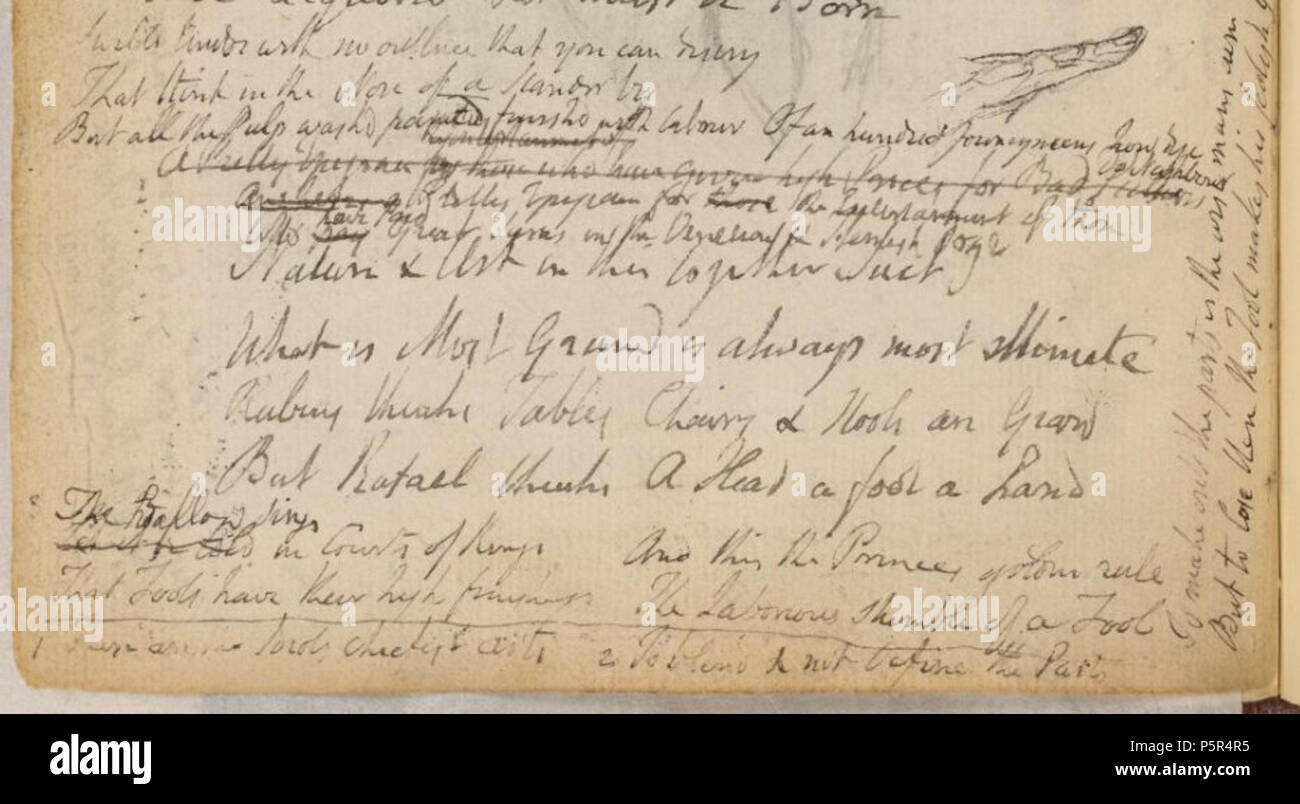 be Acquired but must be Born
Swelld limbs with no outline that you can descry
That Stink in the Nose of a Stander by
But all the Pulp washd painted finishd with labour
Of an hundred Journeymens how dye do Neighbour
A Pretty Epigram for those who have given high Prices for Bad Pictures
A Pretty Epigram for those the Entertainment of those
Who pay have Paid Great Sums in the Venetian & Flemish Ooze
Nature & Art in this together Suit
What is Most Grand is always most Minute
Rubens thinks Tables Chairs & Stools are Grand
But Rafael thinks A Head a foot a hand
The Swallow sings
in Courts of Kings
That Fools have their high finishings
And this the Princes golden rule
The Laborious stumble of a Fool
1 These are the Fools chiefest arts
2 To blend & not define the Parts
To make out the parts is the wise mans aim
But to lose them the Fool makes his foolish
a
alamy
Image ID: P5R4R5
www.alamy.com